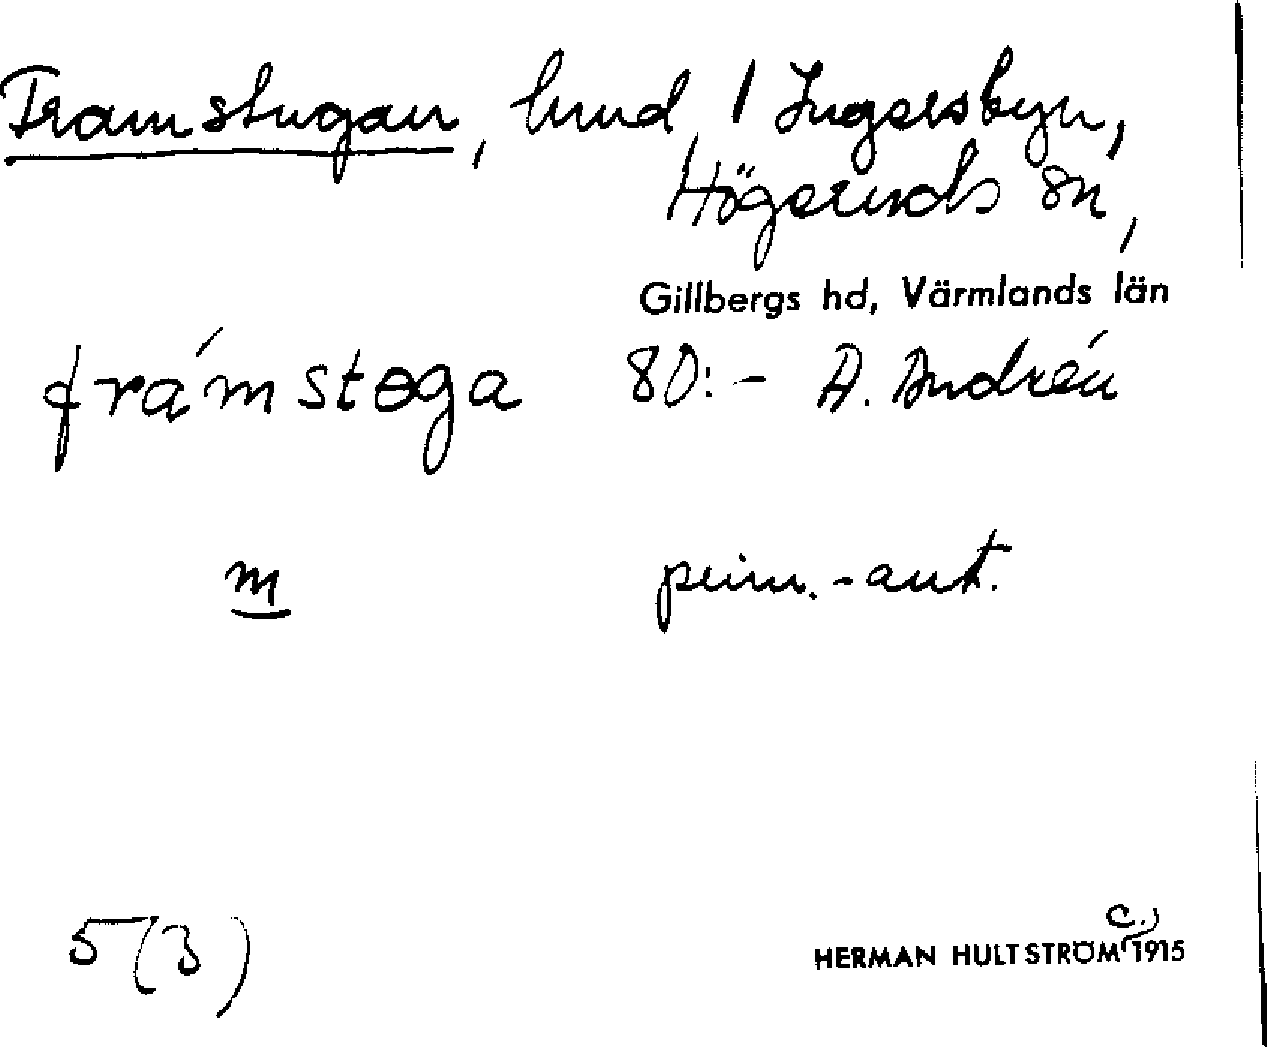 Framstugan, lund, 1 Ingersbyn,
Högeruds sn,
Gillbergs hd, Värmlands län
frámstøga 80:- A. Andrén
m prim.-ant.
5(3) HERMAN HULTSTRÖM (c.) 1915